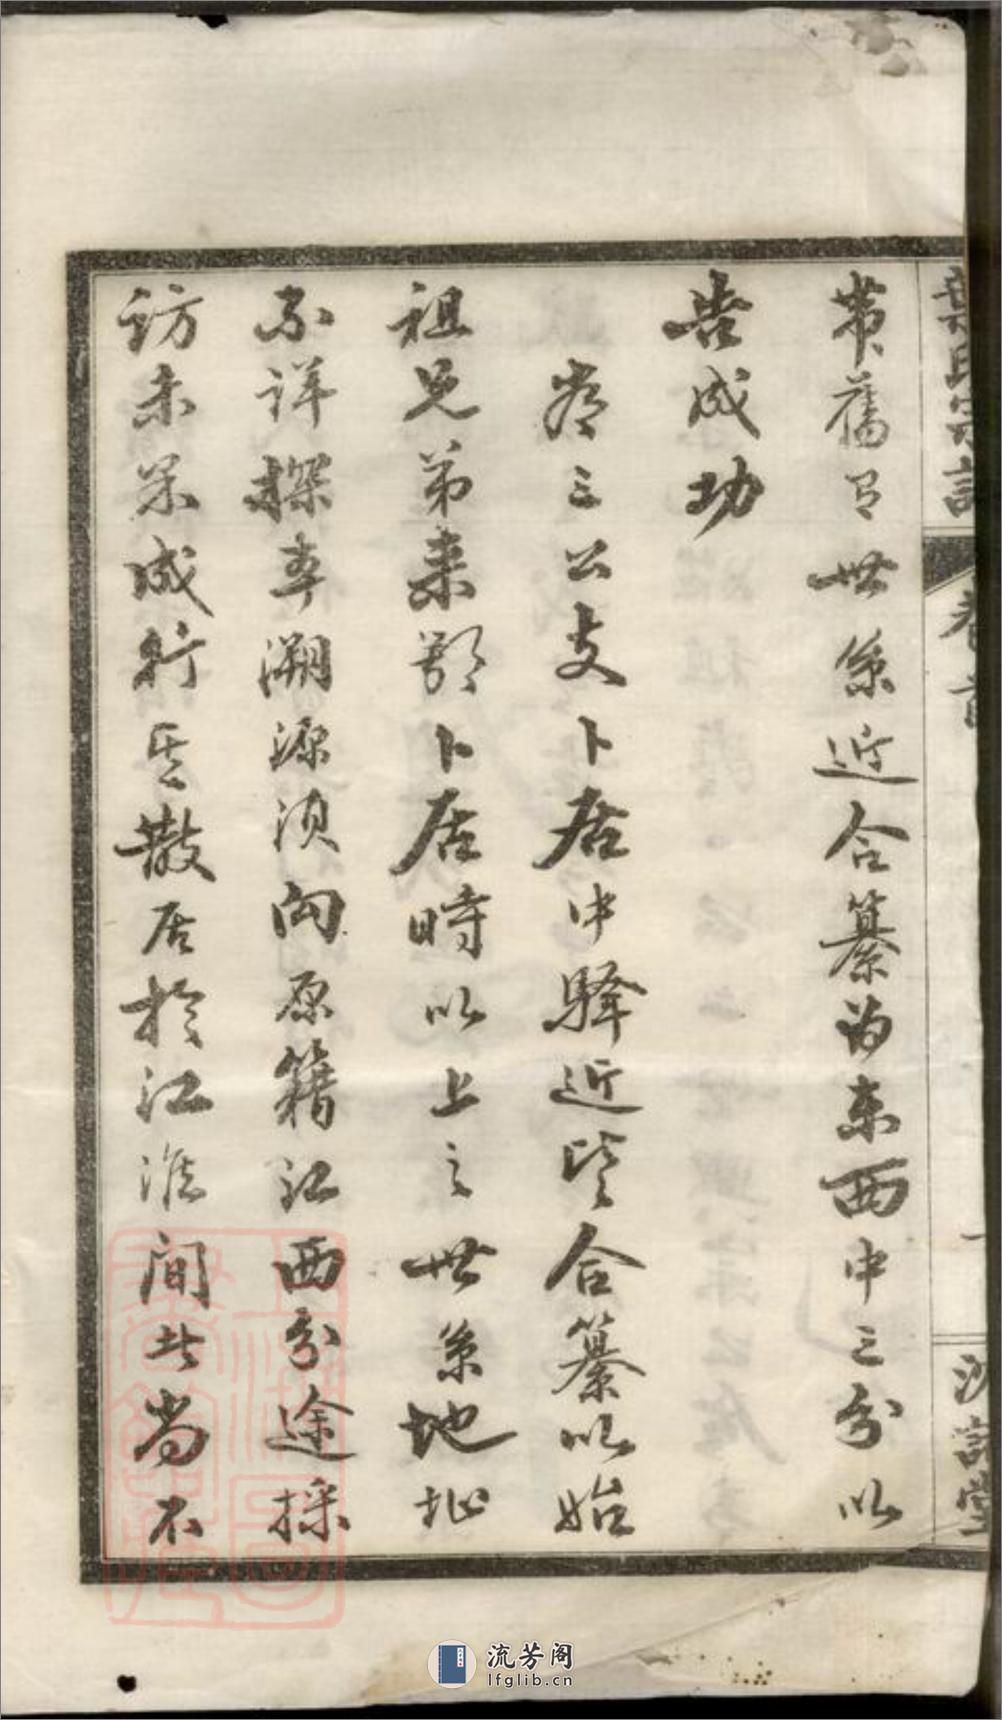 葉氏宗譜
卷首
一
帶舊有世系近合纂为東西中三分以
告成功
彥三公支卜居中驛近皆合纂以始
祖兄弟来鄂卜居時以上之世系地址
不详探本溯源须向原籍江西分途採
访未果成行其散居於江淮間者尚不
流芳阁
lfglib.cn